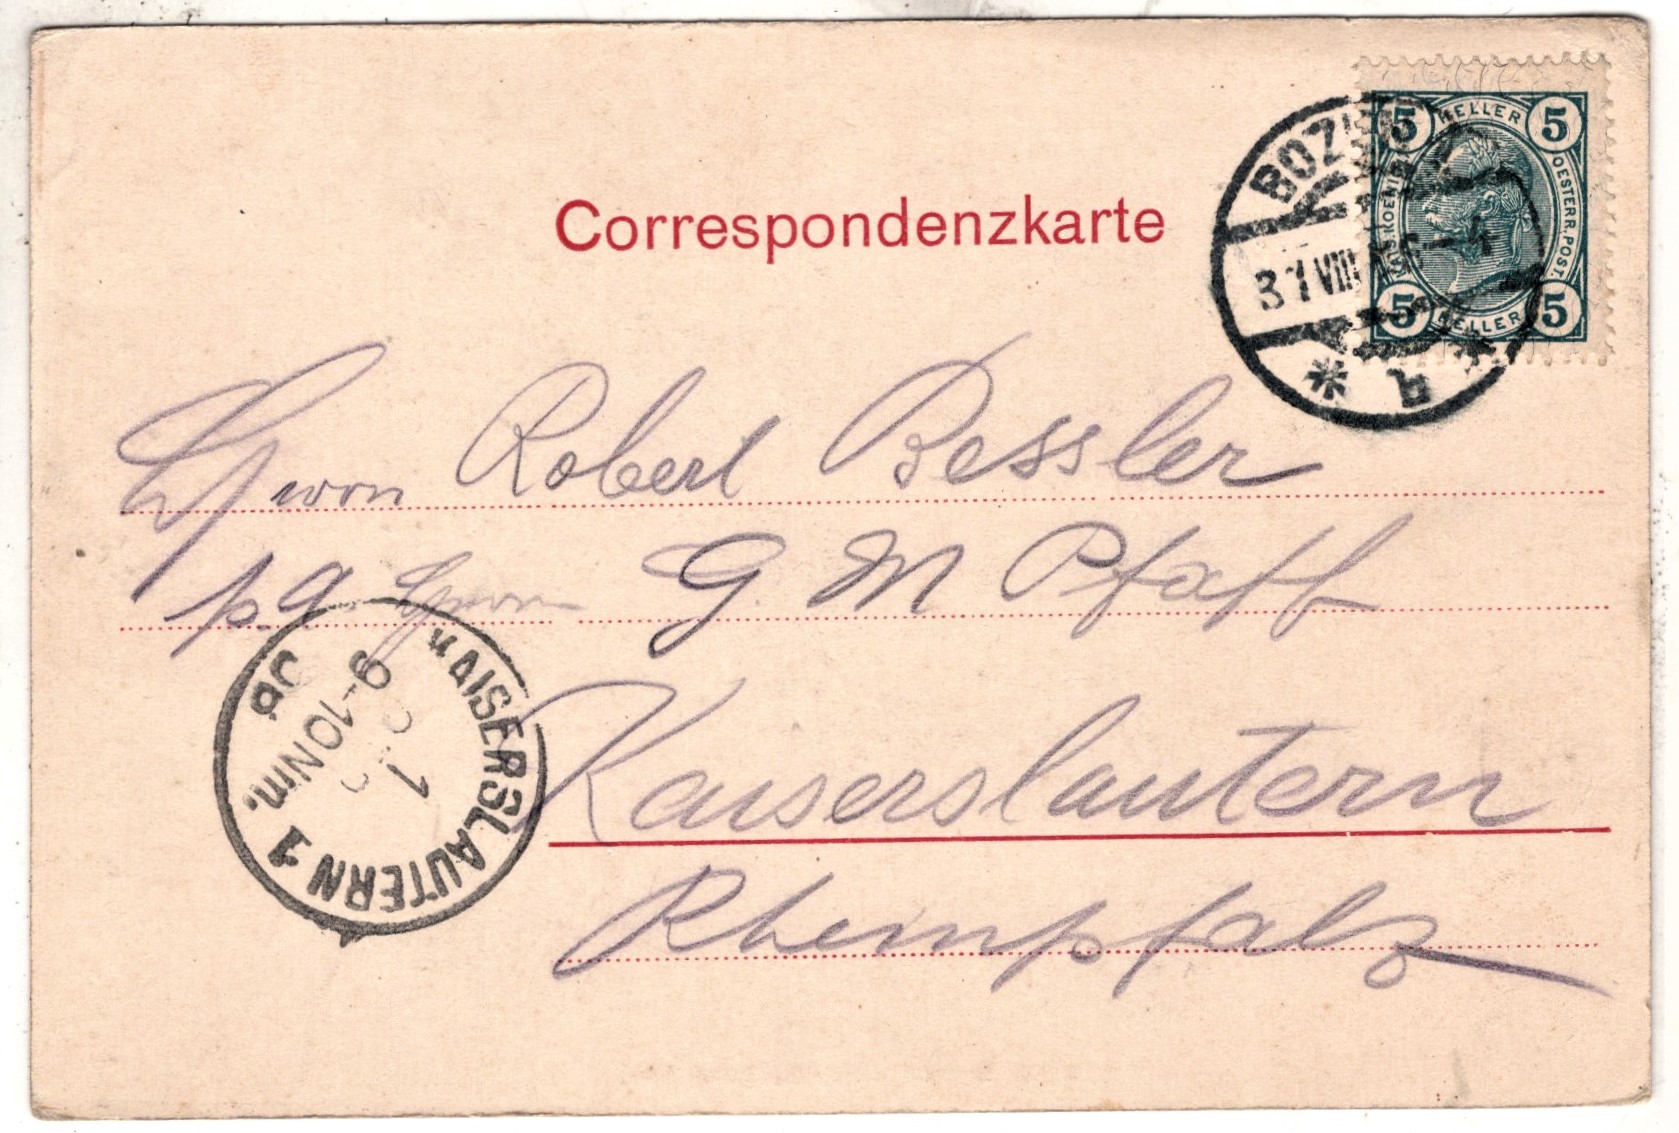 Correspondenzkarte
5 HELLER 5
KAIS. KOENIGL. OESTERR. POST.
5 HELLER 5
BOZEN 2
31 VIII
* a *
Herrn Robert Bessler
Herrn G. M Pfaff
Kaiserslautern
Rheinpfalz
KAISERSLAUTERN 1
9-10 Nm.